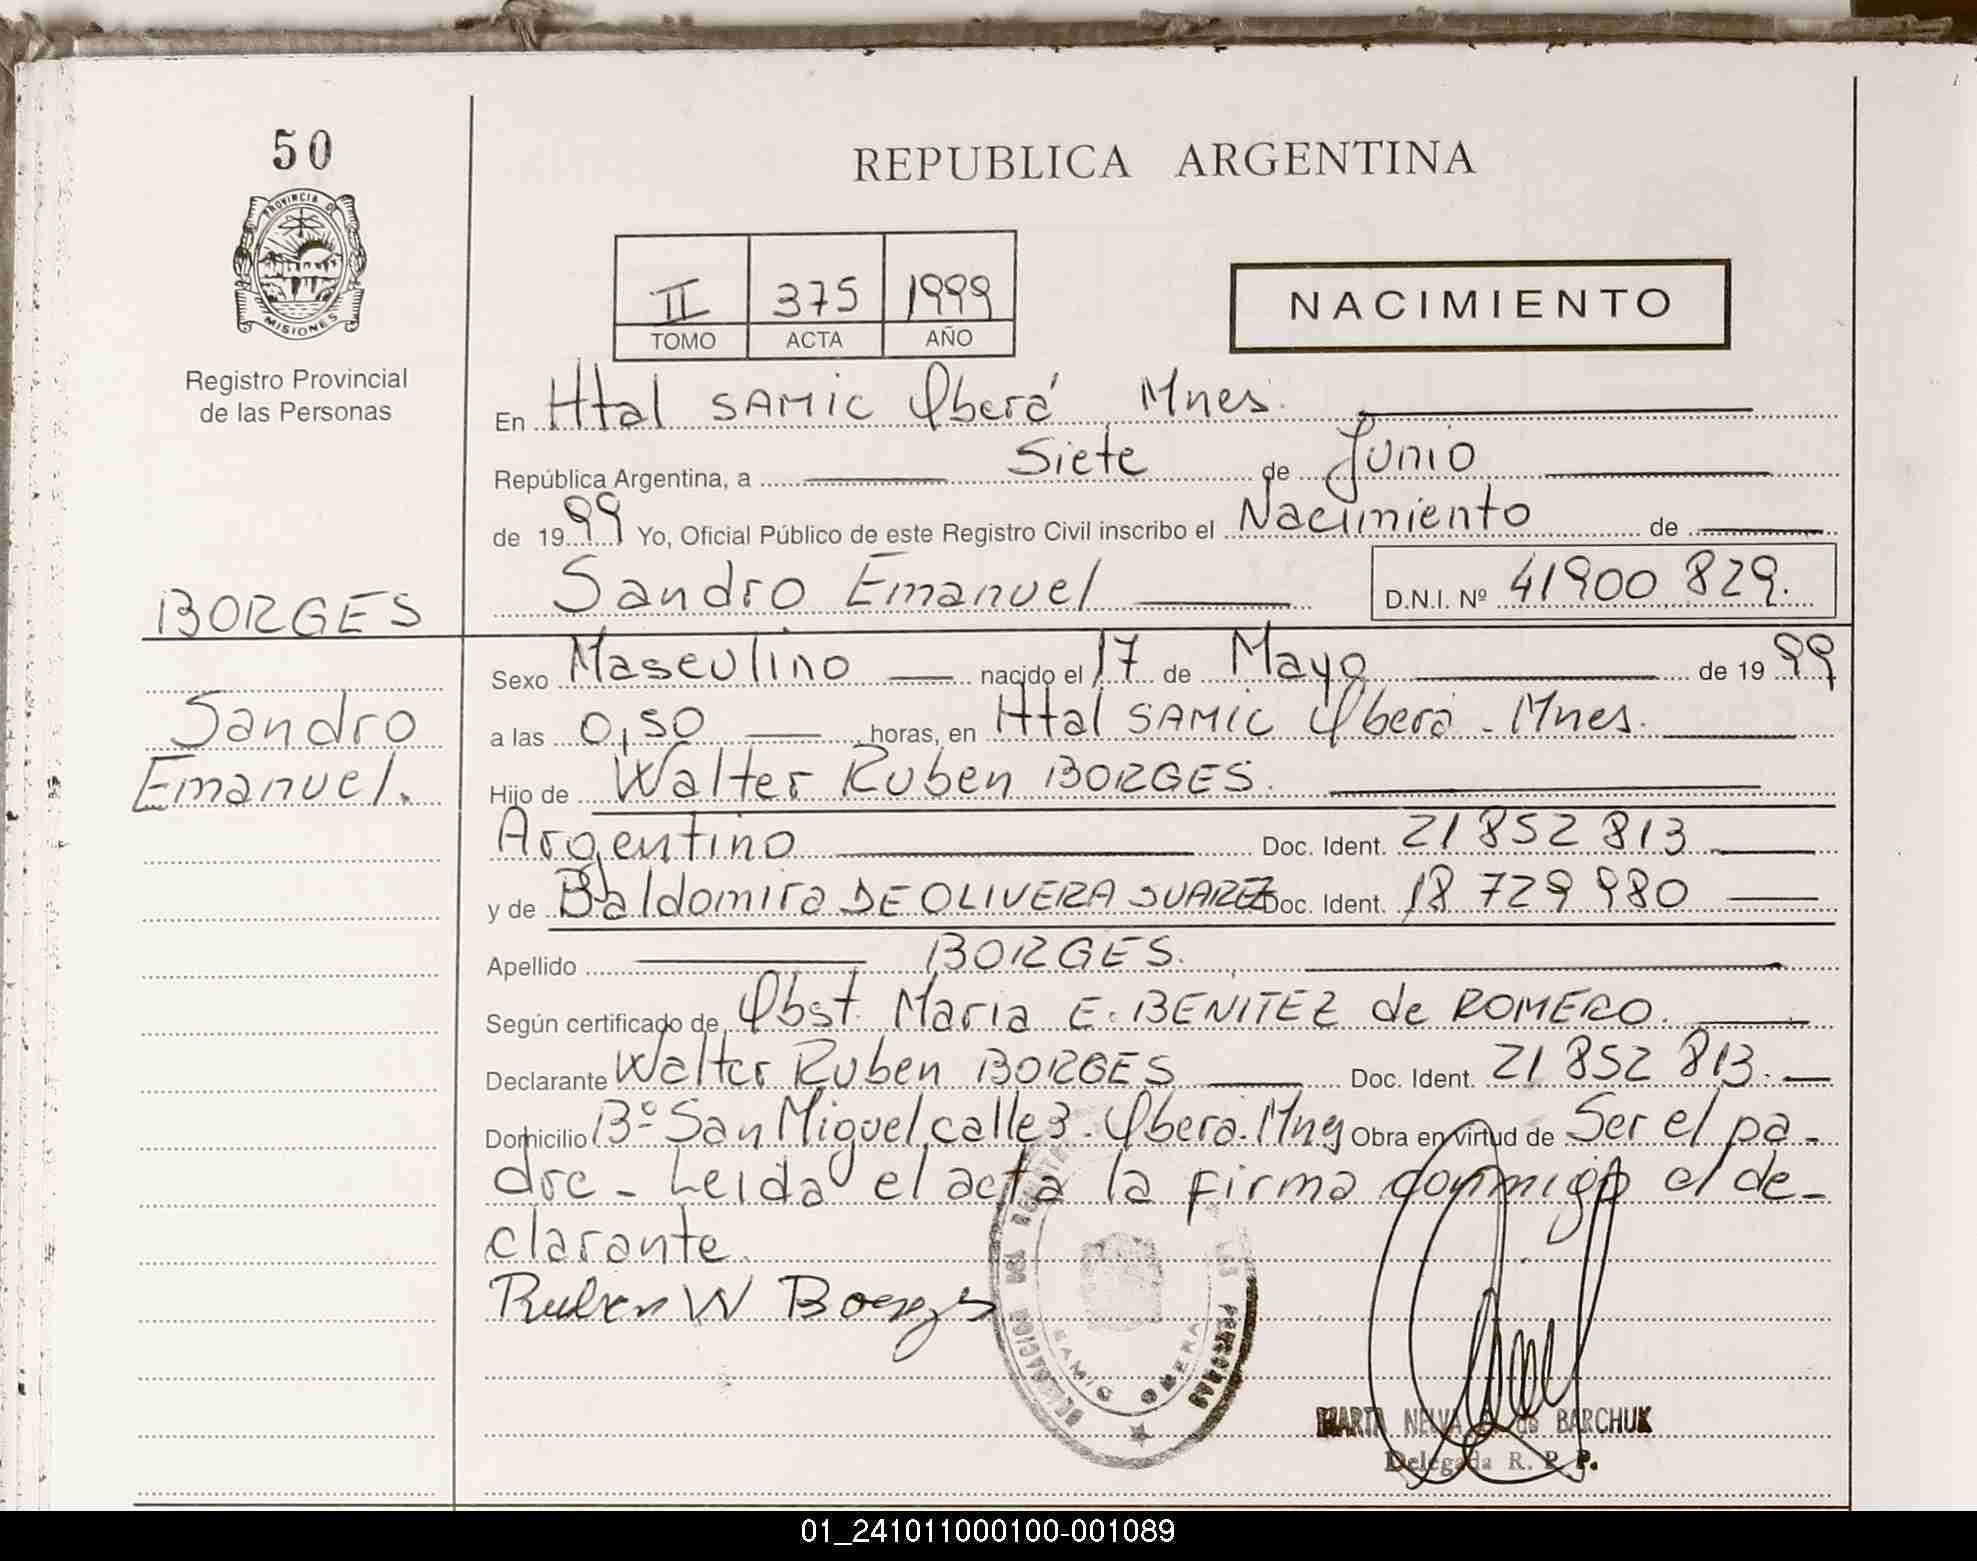 50
PROVINCIA D
MISIONES
Registro Provincial
de las Personas
REPUBLICA ARGENTINA
II 375 1999
TOMO ACTA AÑO
NACIMIENTO
En Htal SAMIC Oberá Mnes.
República Argentina, a Siete de Junio
de 1999 Yo, Oficial Público de este Registro Civil inscribo el Nacimiento de
Sandro Emanuel D.N.I. Nº 41900 829.
BORGES
Sandro
Emanuel.
Sexo Masculino nacido el 17 de Mayo de 1999
a las 0,50 horas, en Htal SAMIC Oberá - Mnes.
Hijo de Walter Ruben BORGES.
Argentino Doc. Ident. 21 852 813
y de Baldomira DE OLIVERA SUAREZ Doc. Ident. 18 729 980
Apellido BORGES.
Según certificado de Obst. Maria E. BENITEZ de ROMERO.
Declarante Walter Ruben BORGES Doc. Ident. 21 852 813.
Domicilio Bº San Miguel, calle 3. Oberá. Mnes Obra en virtud de Ser el pa-
dre - Leida el acta la firma conmigo el de-
clarante.
Ruben W Borges
DELEGACION DEL LAS PERSONAS
SAMIC OBERA
MARTA NELVA de BARCHUK
Delegada R. P. P.
01_241011000100-001089